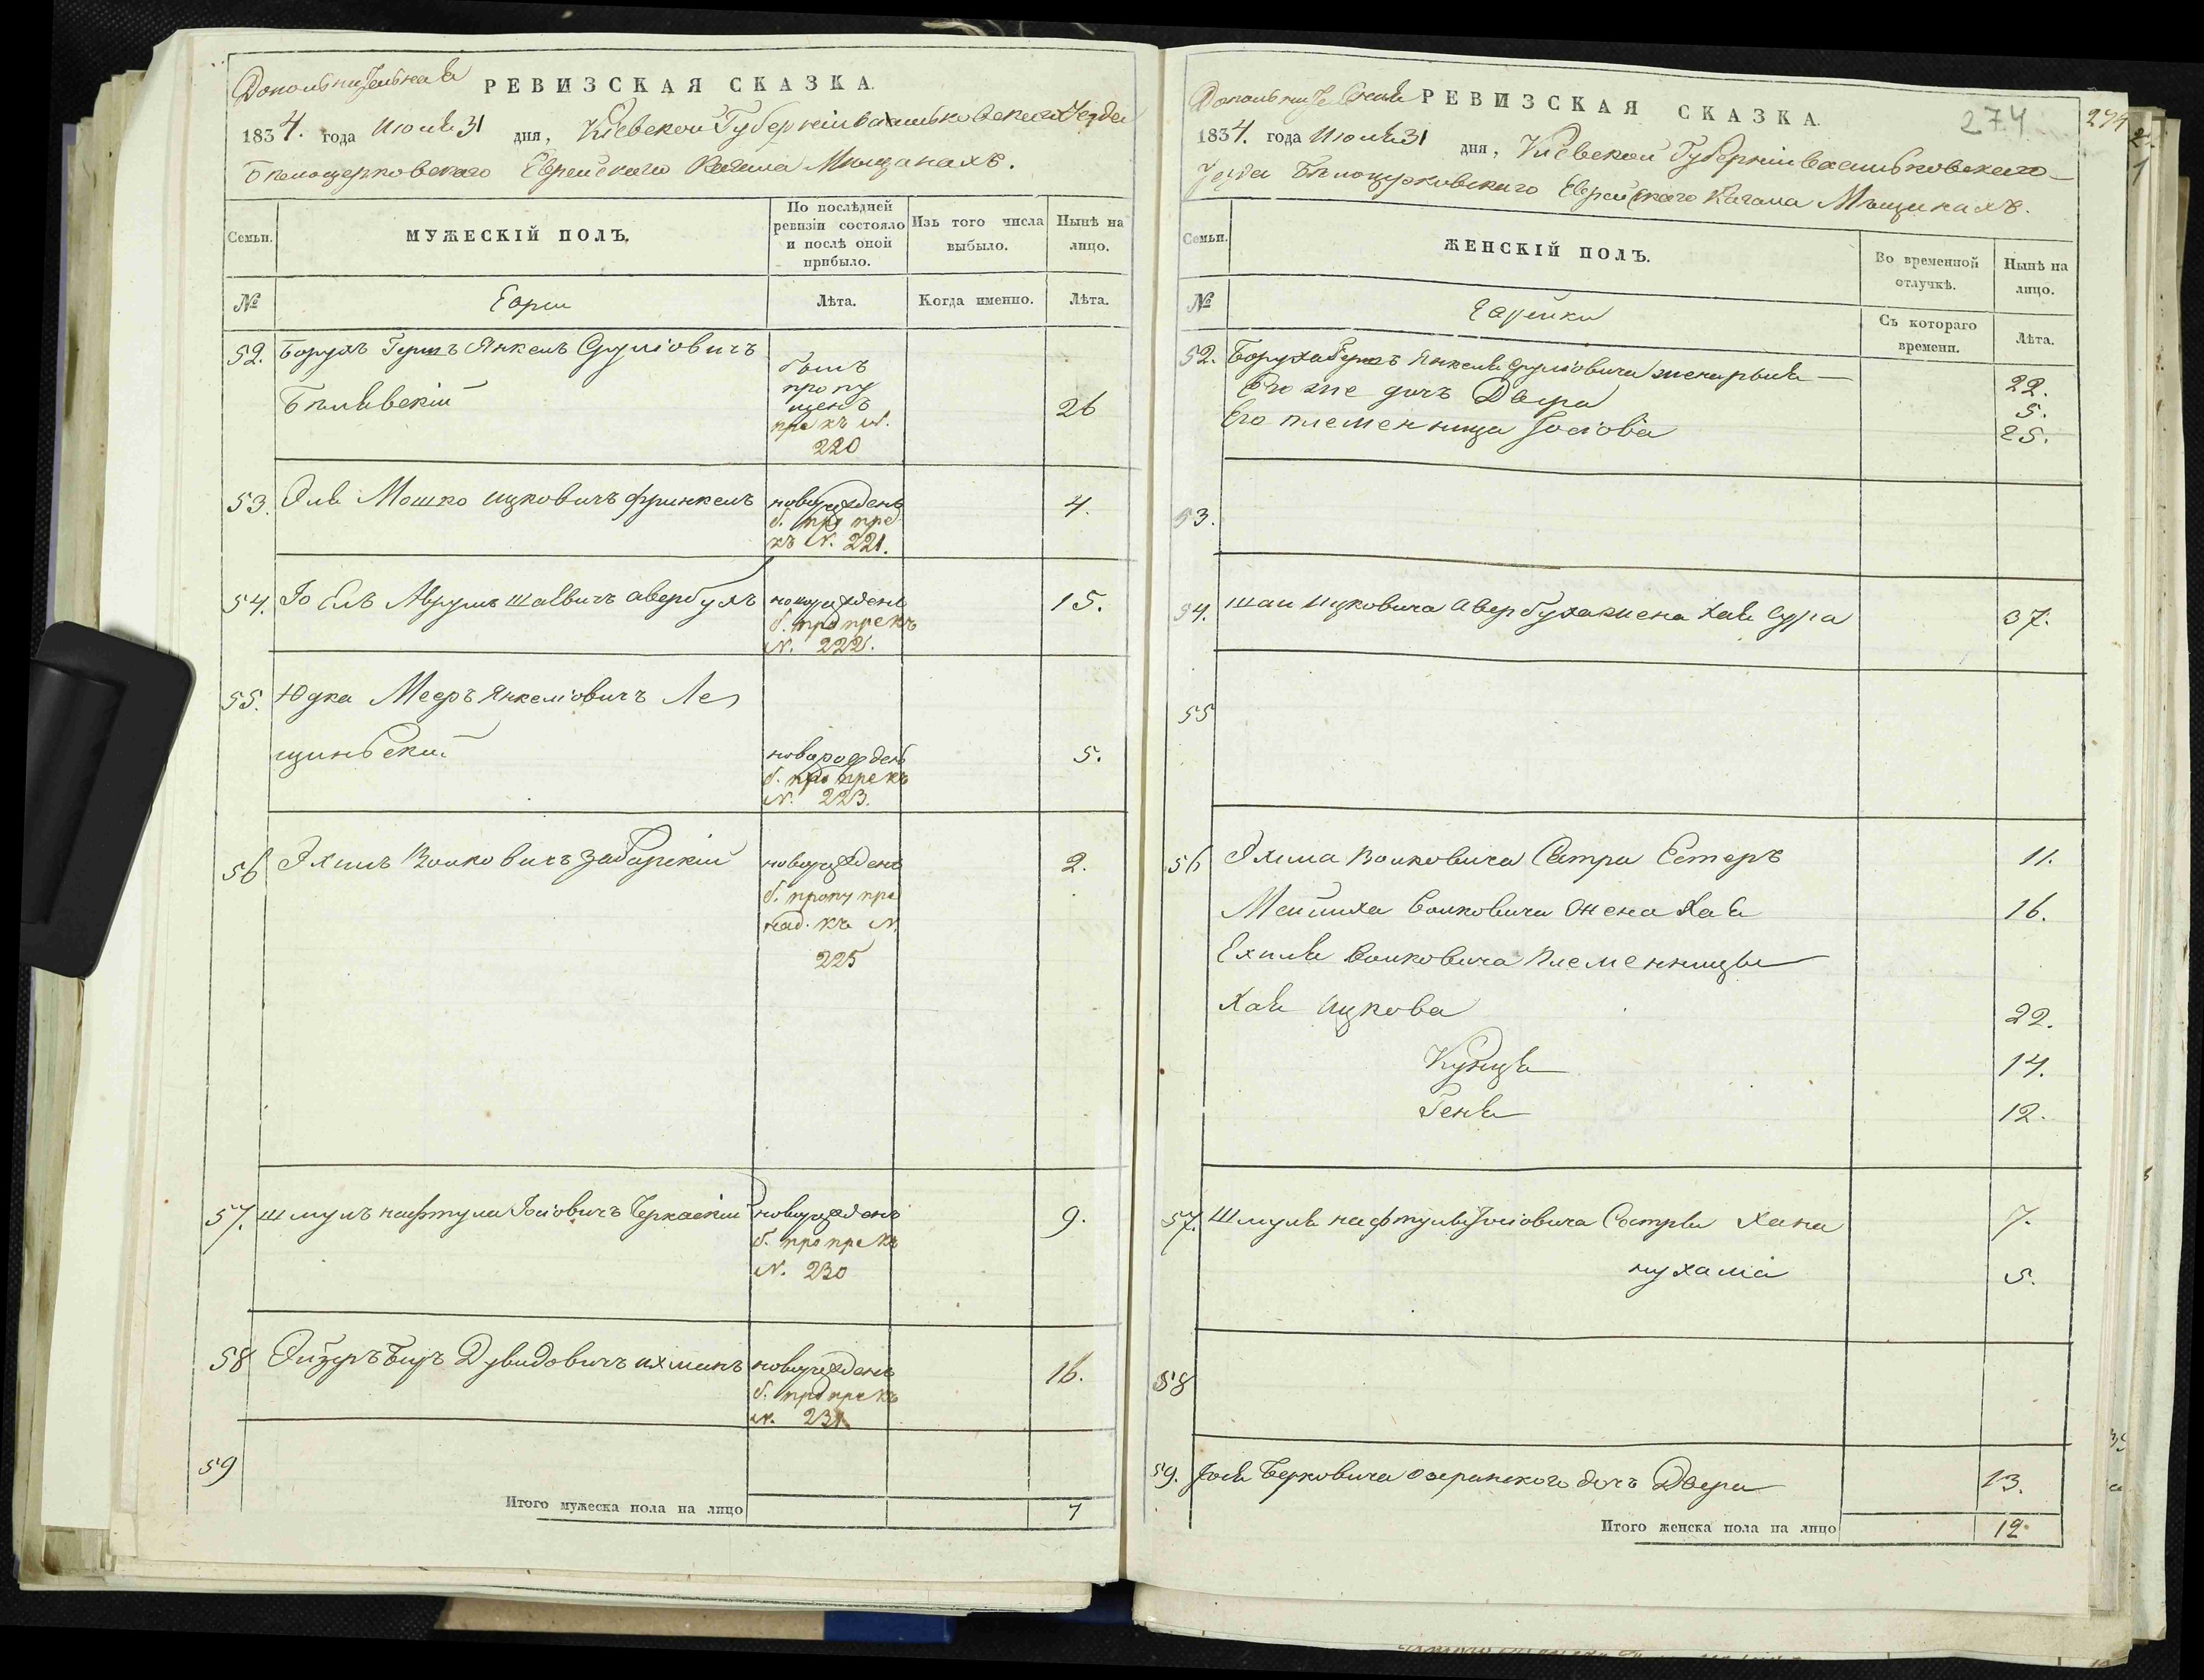 Дополнительная РЕВИЗСКАЯ СКАЗКА.
1834. года Июля 31 дня, Кіевской Губерніи Васильковскаго Уезда
Белоцерковского Еврейского Кагала Мещанахъ.
Семьи.
МУЖЕСКІЙ ПОЛЪ.
По послѣдней ревизіи состояло и послѣ оной прибыло.
Изъ того числа выбыло.
Нынѣ на лицо.
№
Евреи
Лѣта.
Когда именно.
Лѣта.
52. Борухъ Гершъ Янкель Сруліовичъ
Белявскій
былъ
пропу
щенъ
пре къ №.
220
26
53. Эля Мошко Ицковичъ Френкель
новорожденъ
б. про пред
къ №. 221.
4.
54. Іоель Аврумъ Шаевичъ Авербухъ
новорожденъ
б. про пре къ
№. 222.
15.
55. Юдка Мееръ Янкеліовичъ Ле
щинскій
новорожденъ
б. про пре къ
№. 223.
5.
56 Эхиль Волковичъ Забарскій
новорожденъ
б. пропу пре
над. къ №
225
2.
57. Шмуль Нафтула Іосіовичъ Черкаскій
новорожденъ
б. про пре къ
№. 230
9.
58 Эйзеръ Беръ Дувидовичъ Ихманъ
новорожденъ
б. про пре къ
№. 231.
16.
59
Итого мужеска пола на лицо
7
Дополнительная РЕВИЗСКАЯ СКАЗКА.
274
274
1834. года Июля 31 дня, Кіевской Губерніи Васильковскаго
Уезда Белоцерковскаго Еврейскаго Кагала Мещанахъ.
Семьи.
ЖЕНСКІЙ ПОЛЪ.
Во временной отлучкѣ.
Нынѣ на лицо.
№
Еврейки
Съ котораго времени.
Лѣта.
52. Боруха Герша Янкеля Сруліовича жена Рыва 22.
Его же дочь Двера 5.
Его племенница Іосіова 25.
53.
54. Шаи Ицковича Авербуха жена Хая Сура 37.
55
56 Эхиля Волковича Сестра Естеръ 11.
Волковича жена Хая 16.
Ехиля Волковича Племенницы
Хая Ицкова 22.
Куница 14.
Геня 12.
57. Шмуля Нафтули Іосіовича Сестры Хана 7.
Нухама 5.
58
59. Іося Берковича Озеранского дочь Двера 13.
Итого женска пола на лицо
12